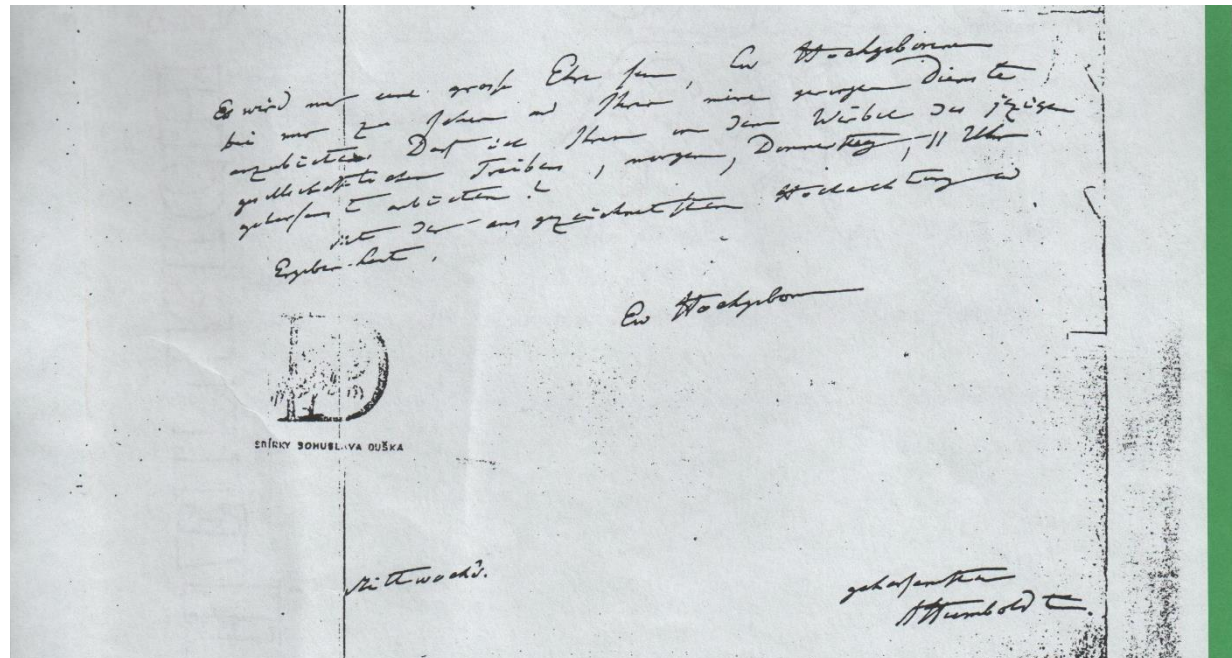 Es wird mir eine große Ehre sein, Ew Hochgeboren
bei mir zu sehen und Ihnen meine geringen Dienste
anzubieten. Darf ich Ihnen in dem Wirbel des jezigen
gesellschaftlichen Treibens, morgen, Donnerstag, 11 Uhr
gehorsamst anbieten?
Mit der ausgezeichnetsten Hochachtung u
Ergebenheit,
Ew Hochgeboren
SBÍRKY BOHUSLAVA DUŠKA
Mittwochs.
gehorsamster
AHumboldt.